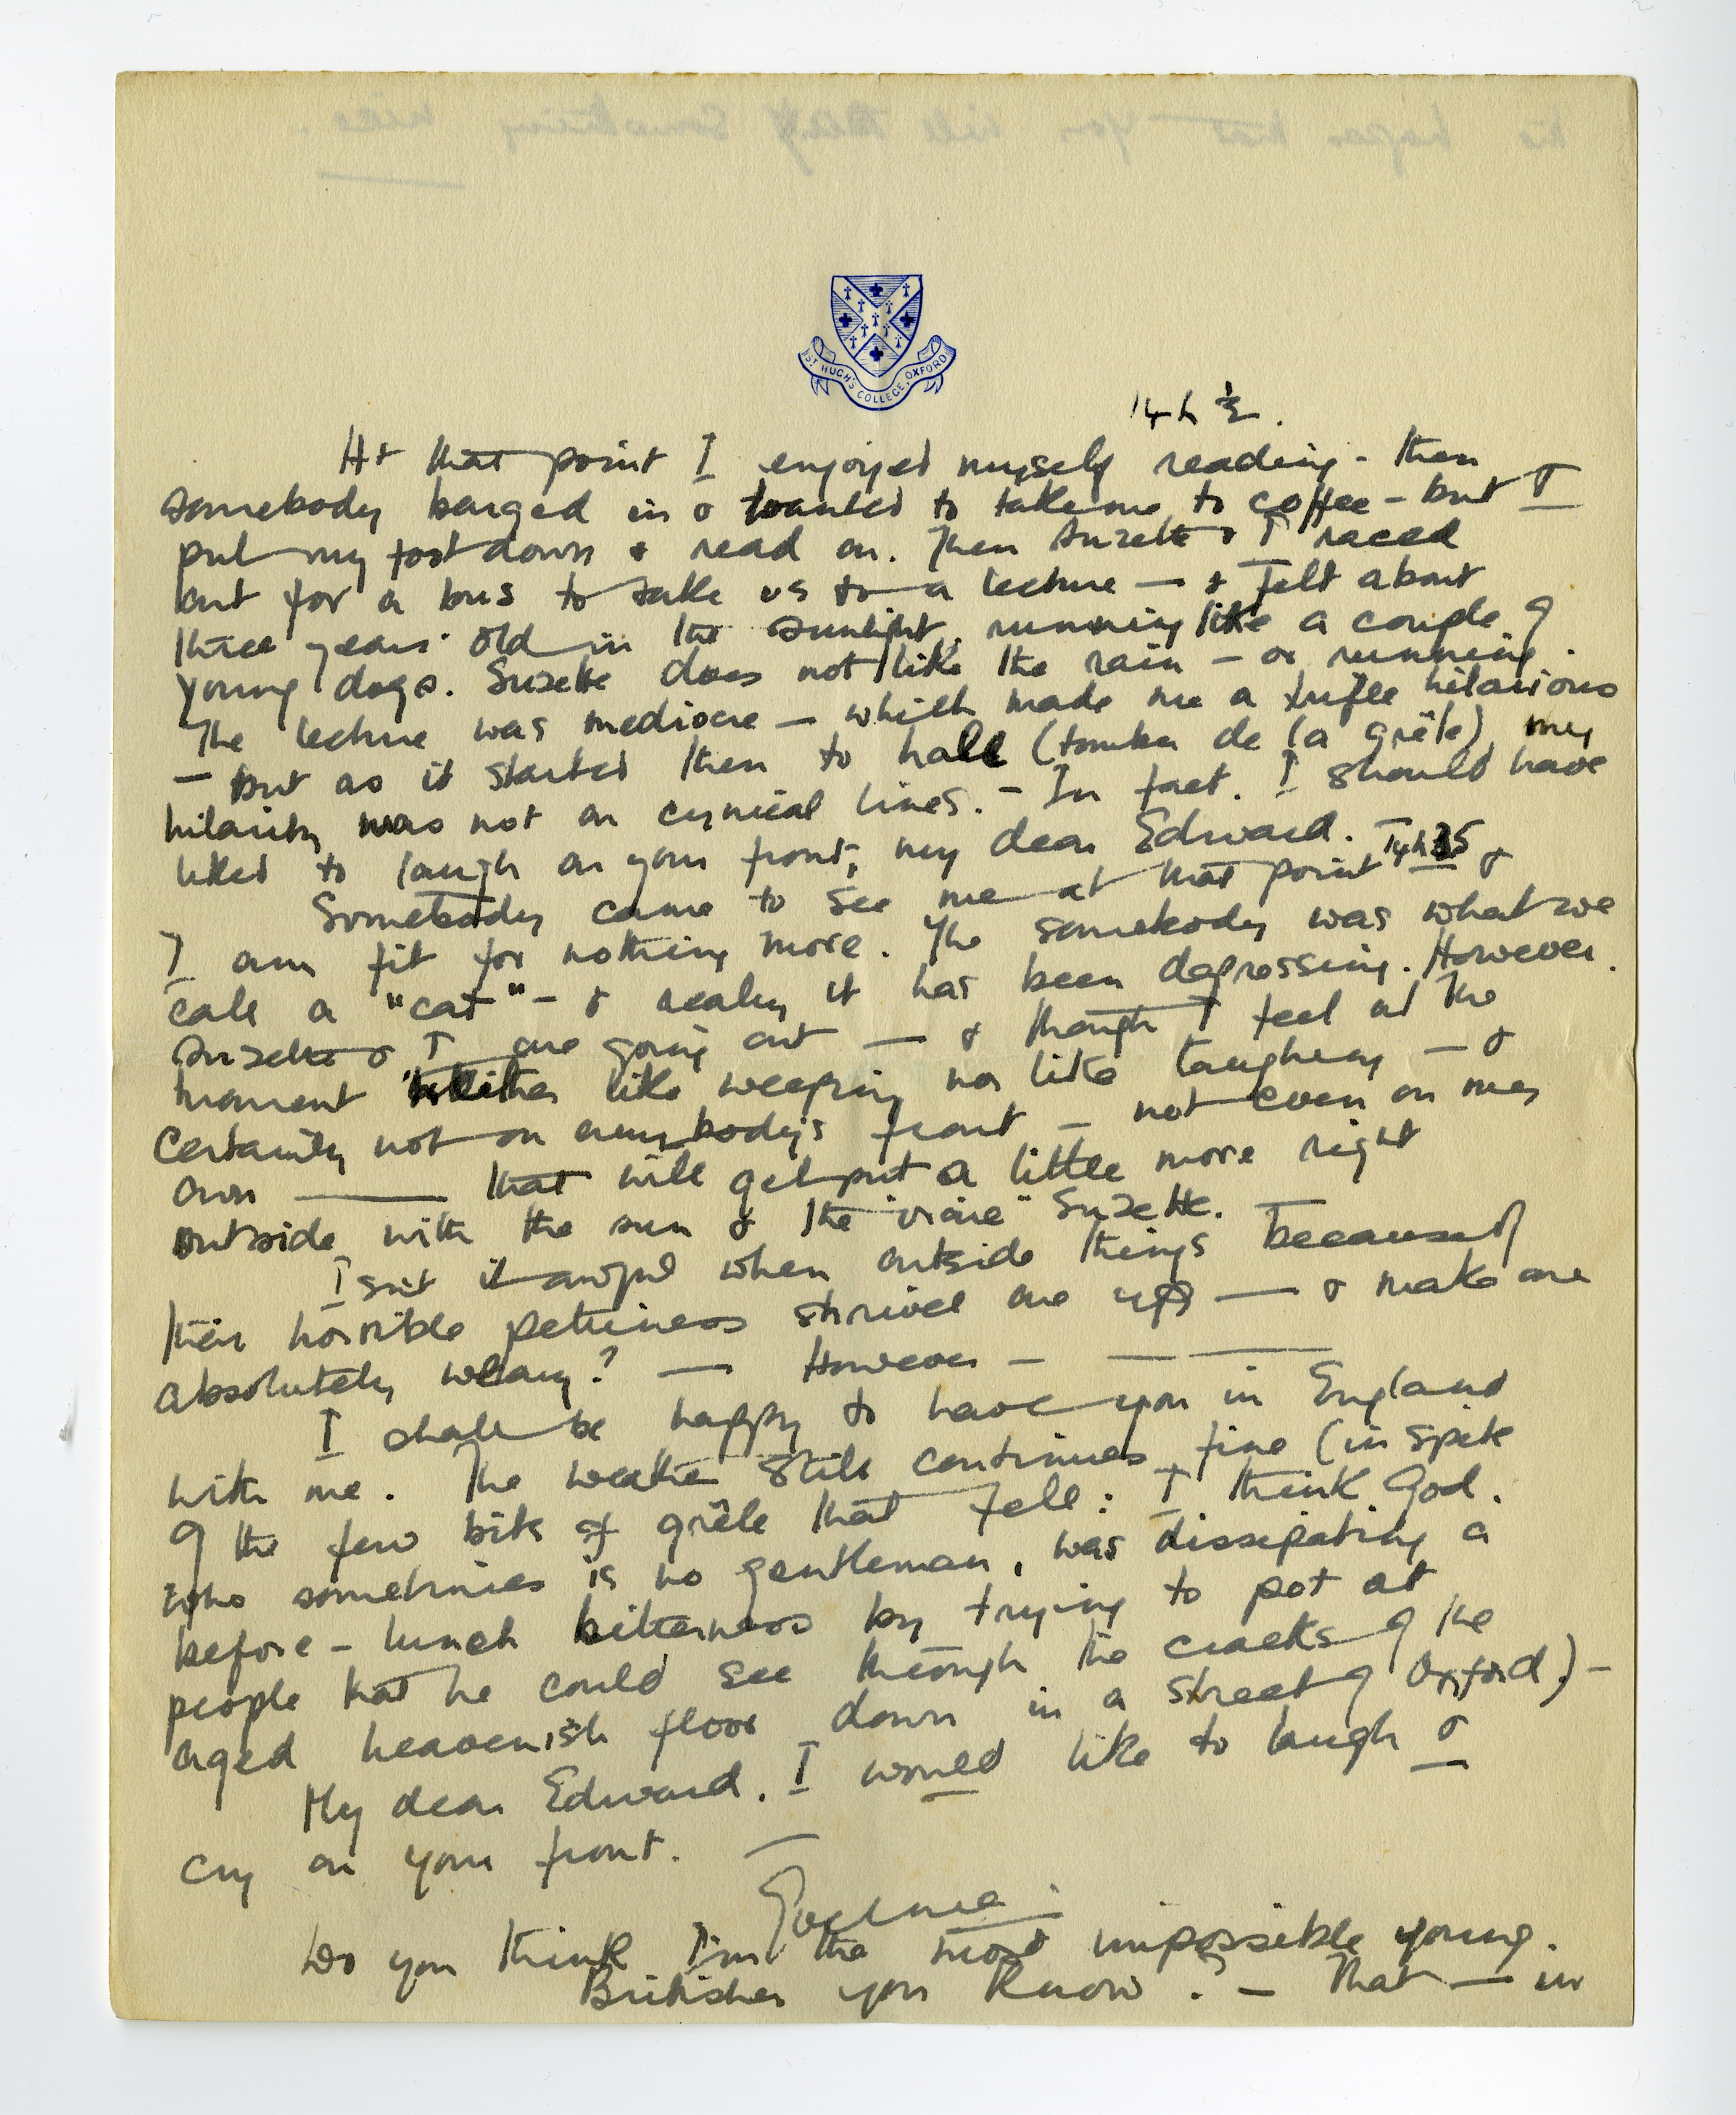 ST HUGH'S COLLEGE, OXFORD
14 h ½.
At that point I enjoyed myself reading - then
somebody barged in & wanted to take me to coffee - but I
put my foot down & read on. Then Suzette & I raced
out for a bus to take us to a lecture — & felt about
three years old in the sunlight, running like a couple of
young dogs. Suzette does not like the rain - or running.
The lecture was mediocre - which made me a trifle hilarious
- but as it started then to hail (tomber de la grêle) my
hilarity was not on cynical lines. - In fact. I should have
liked to laugh on your front, my dear Edward.
Somebody came to see me at that point &
I am fit for nothing more. The somebody was what we
call a "cat" - & really it has been depressing. However.
Suzette & I are going out — & though I feel at the
moment neither like weeping nor like laughing - &
certainly not on everybody's front - not even on my
own —— that will get put a little more right
outside, with the sun & the "vraie" Suzette.
Isn't it awful when outside things because of
their horrible pettiness shrivel one up — & make one
absolutely weary? — However - — —
I shall be happy to have you in England
with me. The weather still continues fine (in spite
of the few bits of grêle that fell: I think God.
who sometimes is no gentleman, was dissipating a
before-lunch bitterness by trying to pot at
people that he could see through the cracks of the
aged heavenish floor down in a street of Oxford.) -
My dear Edward. I would like to laugh &
cry on your front. —
Do you think I'm the most impossible young.
Britisher you know? - That — in